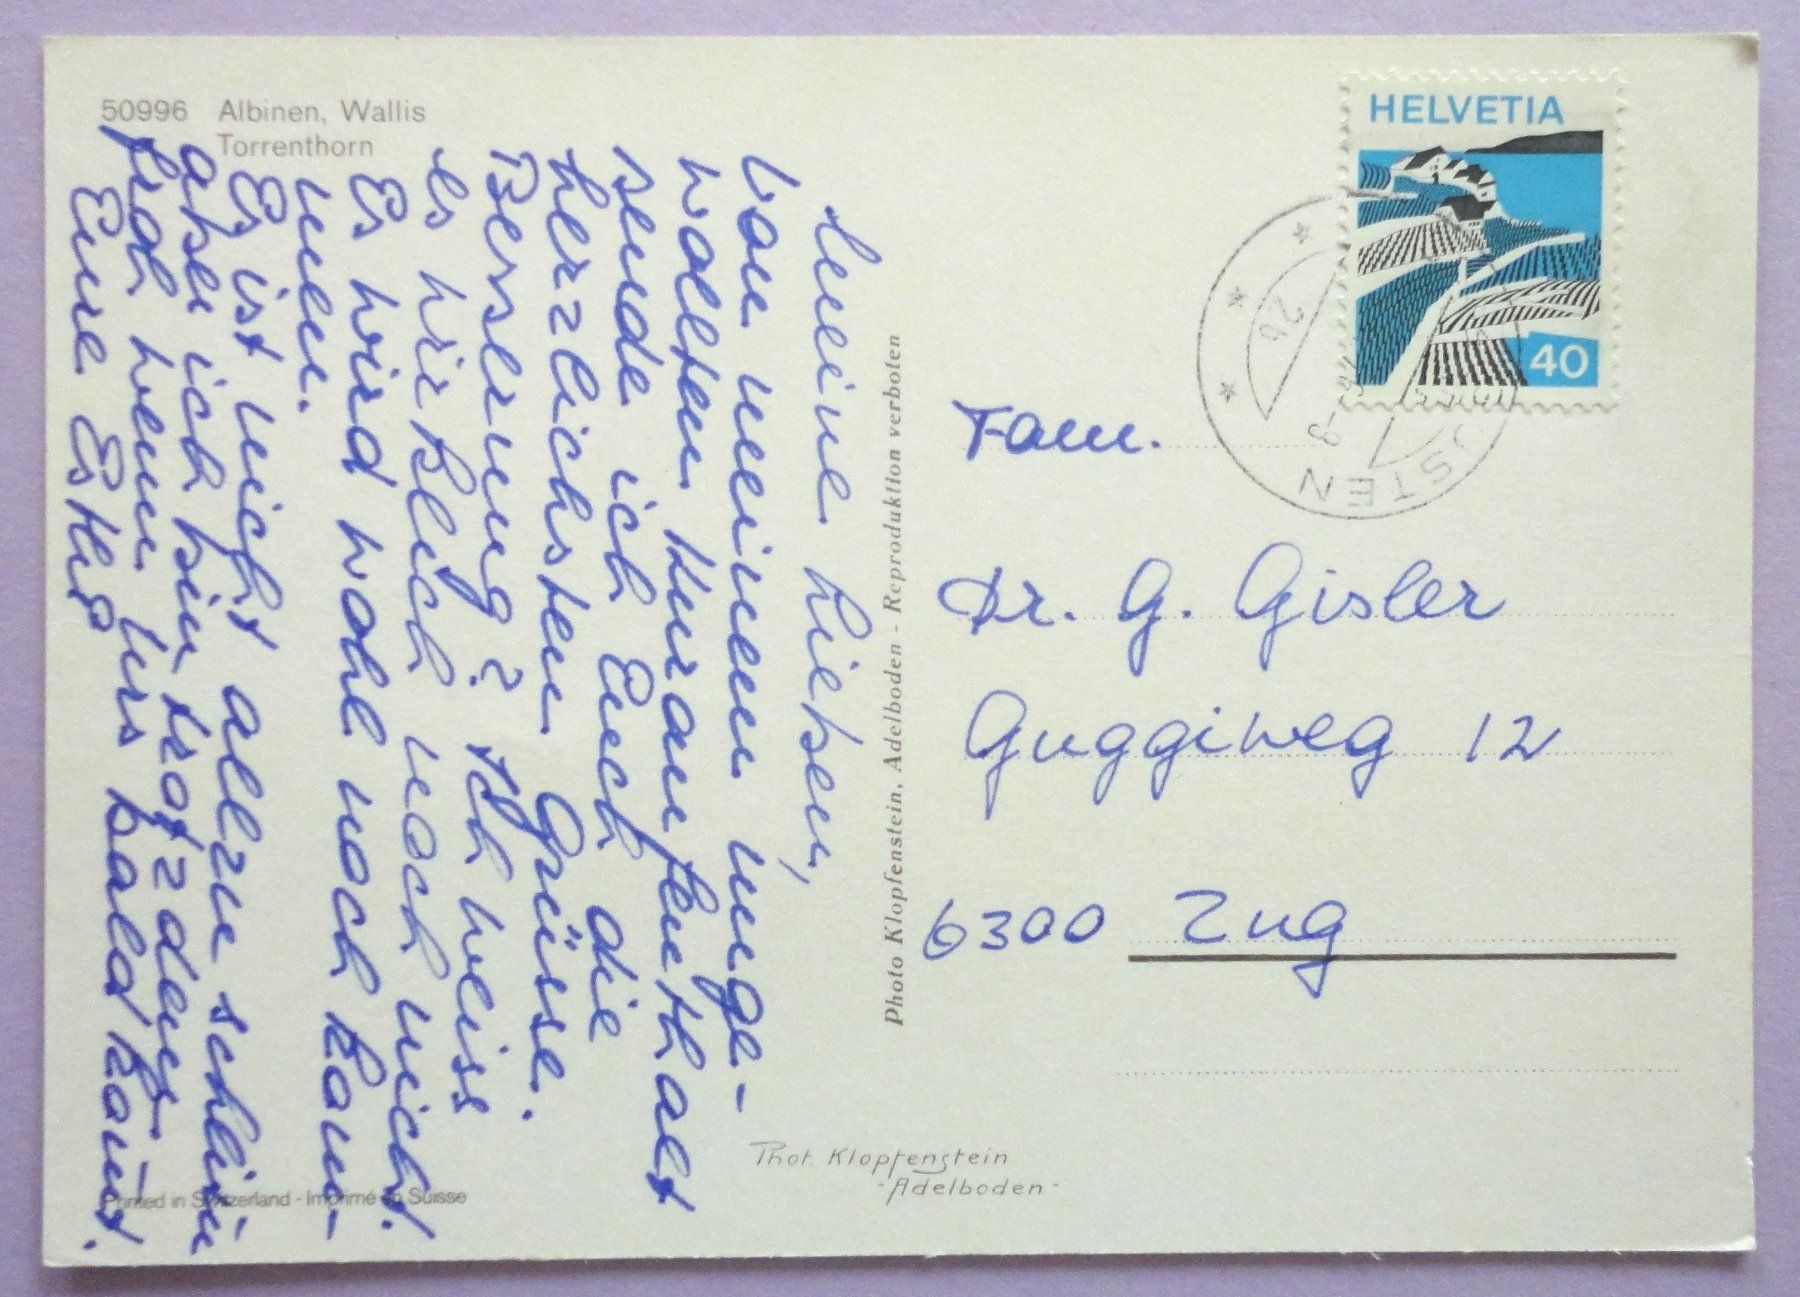 50996 Albinen, Wallis
Torrenthorn
Meine Lieben,
Von meinem unge-
wollten Kuraufenthalt
sende ich Euch die
herzlichsten Grüsse.
Besserung? Ich weiss
es wirklich noch nicht.
Es wird wohl noch kom-
men.
Es ist nicht allzu schlim
aber ich bin trotzdem
froh wenn Urs bald kommt.
Eure Esther
Photo Klopfenstein, Adelboden - Reproduktion verboten
HELVETIA
40
USTEN
26
Fam.
Dr. G. Gisler
Guggiweg 12
6300 Zug
Phot. Klopfenstein
- Adelboden -
Printed in Switzerland - Imprimé en Suisse